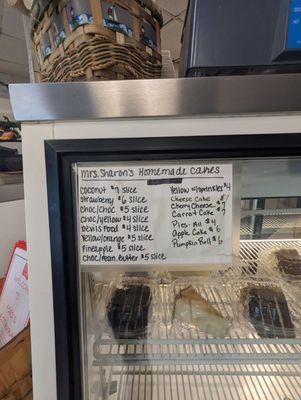 Mrs. Sharon's Homemade Cakes
Coconut $7 slice
Strawberry $6 slice
Choc/choc $5 slice
Choc/yellow $4 slice
Devils Food $4 slice
Yellow/orange $5 slice
Pineapple $5 slice
Choc/pean. Butter $5 slice
Yellow w/sprinkles $4
Cheese Cake $7
Cherry Cheese $7
Carrot Cake $7
Pies - All $4
Apple Cake $6
Pumpkin Roll $6